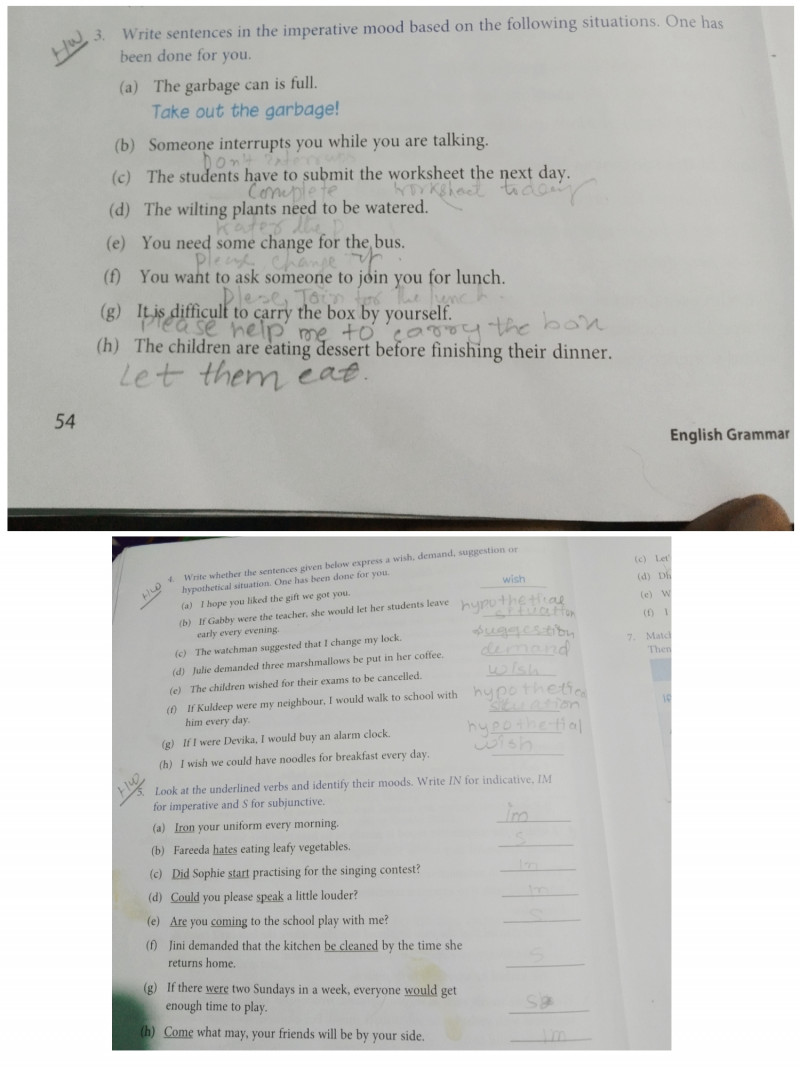 HW 3. Write sentences in the imperative mood based on the following situations. One has
been done for you.
(a) The garbage can is full.
Take out the garbage!
(b) Someone interrupts you while you are talking.
Don't
(c) The students have to submit the worksheet the next day.
Complete worksheet today
(d) The wilting plants need to be watered.
the
(e) You need some change for the bus.
Please change
(f) You want to ask someone to join you for lunch.
Join for the lunch.
(g) It is difficult to carry the box by yourself.
Please help me to carry the box
(h) The children are eating dessert before finishing their dinner.
Let them eat.
54
English Grammar
HW 4. Write whether the sentences given below express a wish, demand, suggestion or
hypothetical situation. One has been done for you.
(a) I hope you liked the gift we got you. wish
(b) If Gabby were the teacher, she would let her students leave hypothetical
early every evening. situation
(c) The watchman suggested that I change my lock. suggestion
(d) Julie demanded three marshmallows be put in her coffee. demand
(e) The children wished for their exams to be cancelled. wish
(f) If Kuldeep were my neighbour, I would walk to school with hypothetic
him every day. situation
(g) If I were Devika, I would buy an alarm clock. hypothetial
(h) I wish we could have noodles for breakfast every day. wish
HW 5. Look at the underlined verbs and identify their moods. Write IN for indicative, IM
for imperative and S for subjunctive.
(a) Iron your uniform every morning. im
(b) Fareeda hates eating leafy vegetables. S
(c) Did Sophie start practising for the singing contest? In
(d) Could you please speak a little louder? In
(e) Are you coming to the school play with me? S
(f) Jini demanded that the kitchen be cleaned by the time she
returns home. S
(g) If there were two Sundays in a week, everyone would get
enough time to play. S
(h) Come what may, your friends will be by your side. im
(c) Let'
(d) Dh
(e) W
(f) I
7. Match
Then